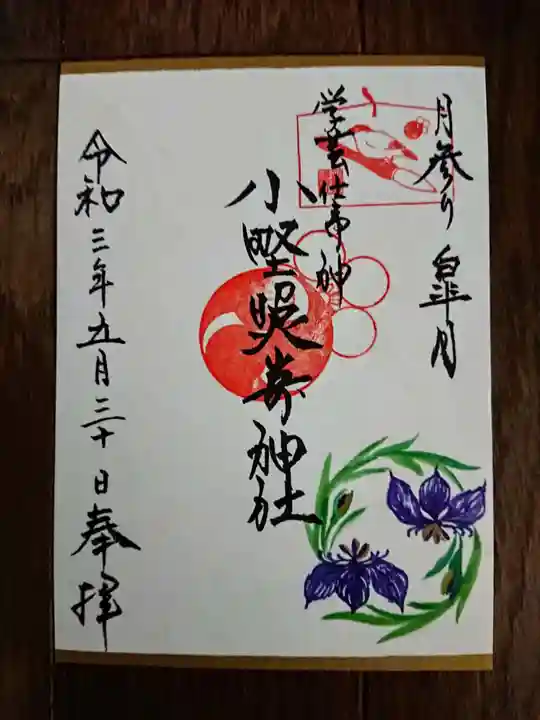 月参り 皐月
学芸仕事ノ神
小野照崎神社
令和三年五月三十日奉拝